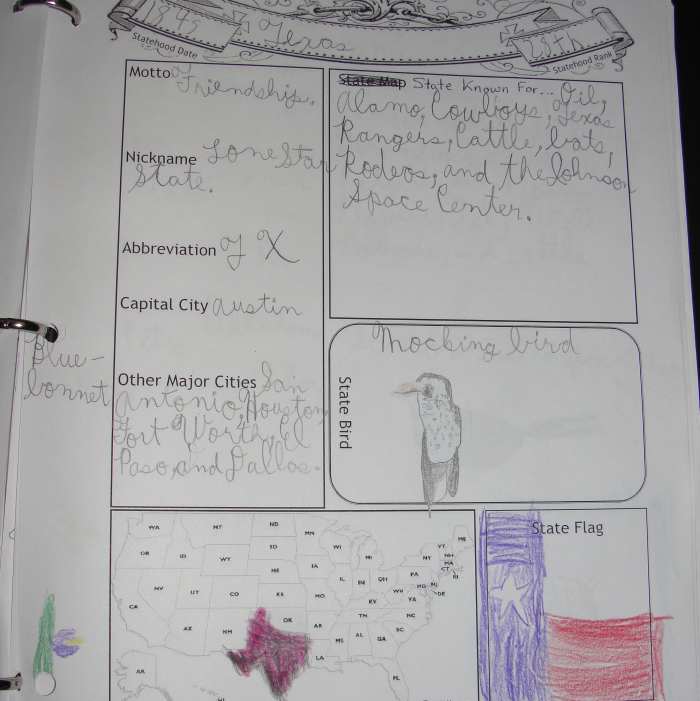 1845 Texas 28th
Statehood Date
Statehood Rank
Motto Friendship.
Nickname Lone Star
State.
Abbreviation TX
Capital City Austin
Other Major Cities San
Antonio, Houston,
Fort Worth, El
Paso, and Dallas.
State Map State Known For... Oil,
Alamo, Cowboys, Texas
Rangers, Cattle, bats,
Rodeos, and the Johnson
Space Center.
Blue-
bonnet
Mocking bird
State Bird
State Flag
WA MT ND MN ME
OR ID WY SD WI MI NY VT NH MA CT RI
NV UT CO NE IA IL IN OH PA NJ DE MD
CA KS MO KY WV VA
AZ NM OK AR TN NC SC
MS AL GA
LA FL
AK HI